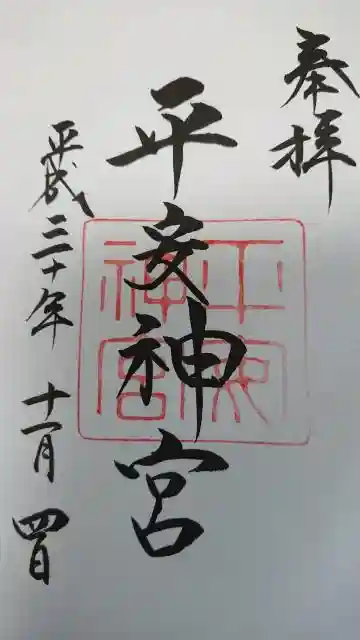 奉拝
平安神宮
平安神宮
平成三十年 十一月 四日